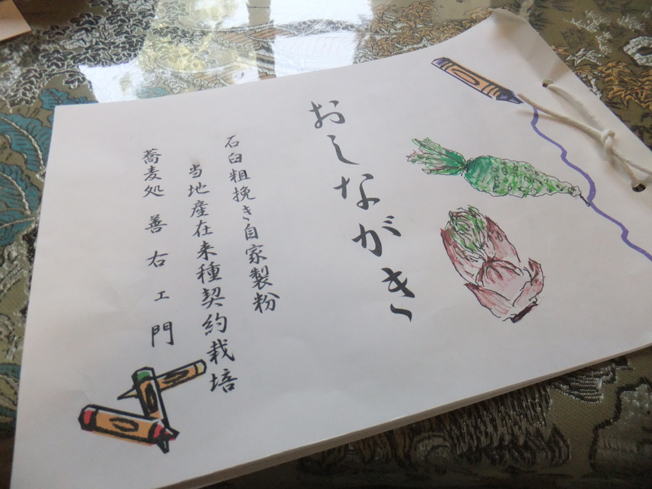 おしながき
石臼粗挽き自家製粉
当地産在来種契約栽培
蕎麦処 善右ェ門